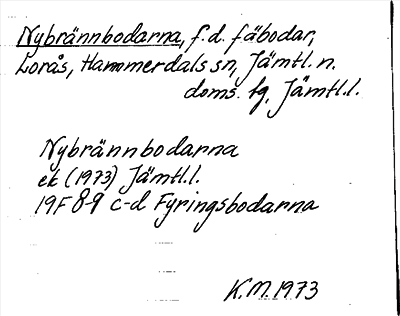 Nybrännbodarna, f.d. fäbodar,
Lorås, Hammerdals sn, Jämtl. n.
doms. tg, Jämtl.l.
Nybrännbodarna
ek (1973) Jämtl.l.
19F 8-9 c-d Fyringsbodarna
K.M. 1973